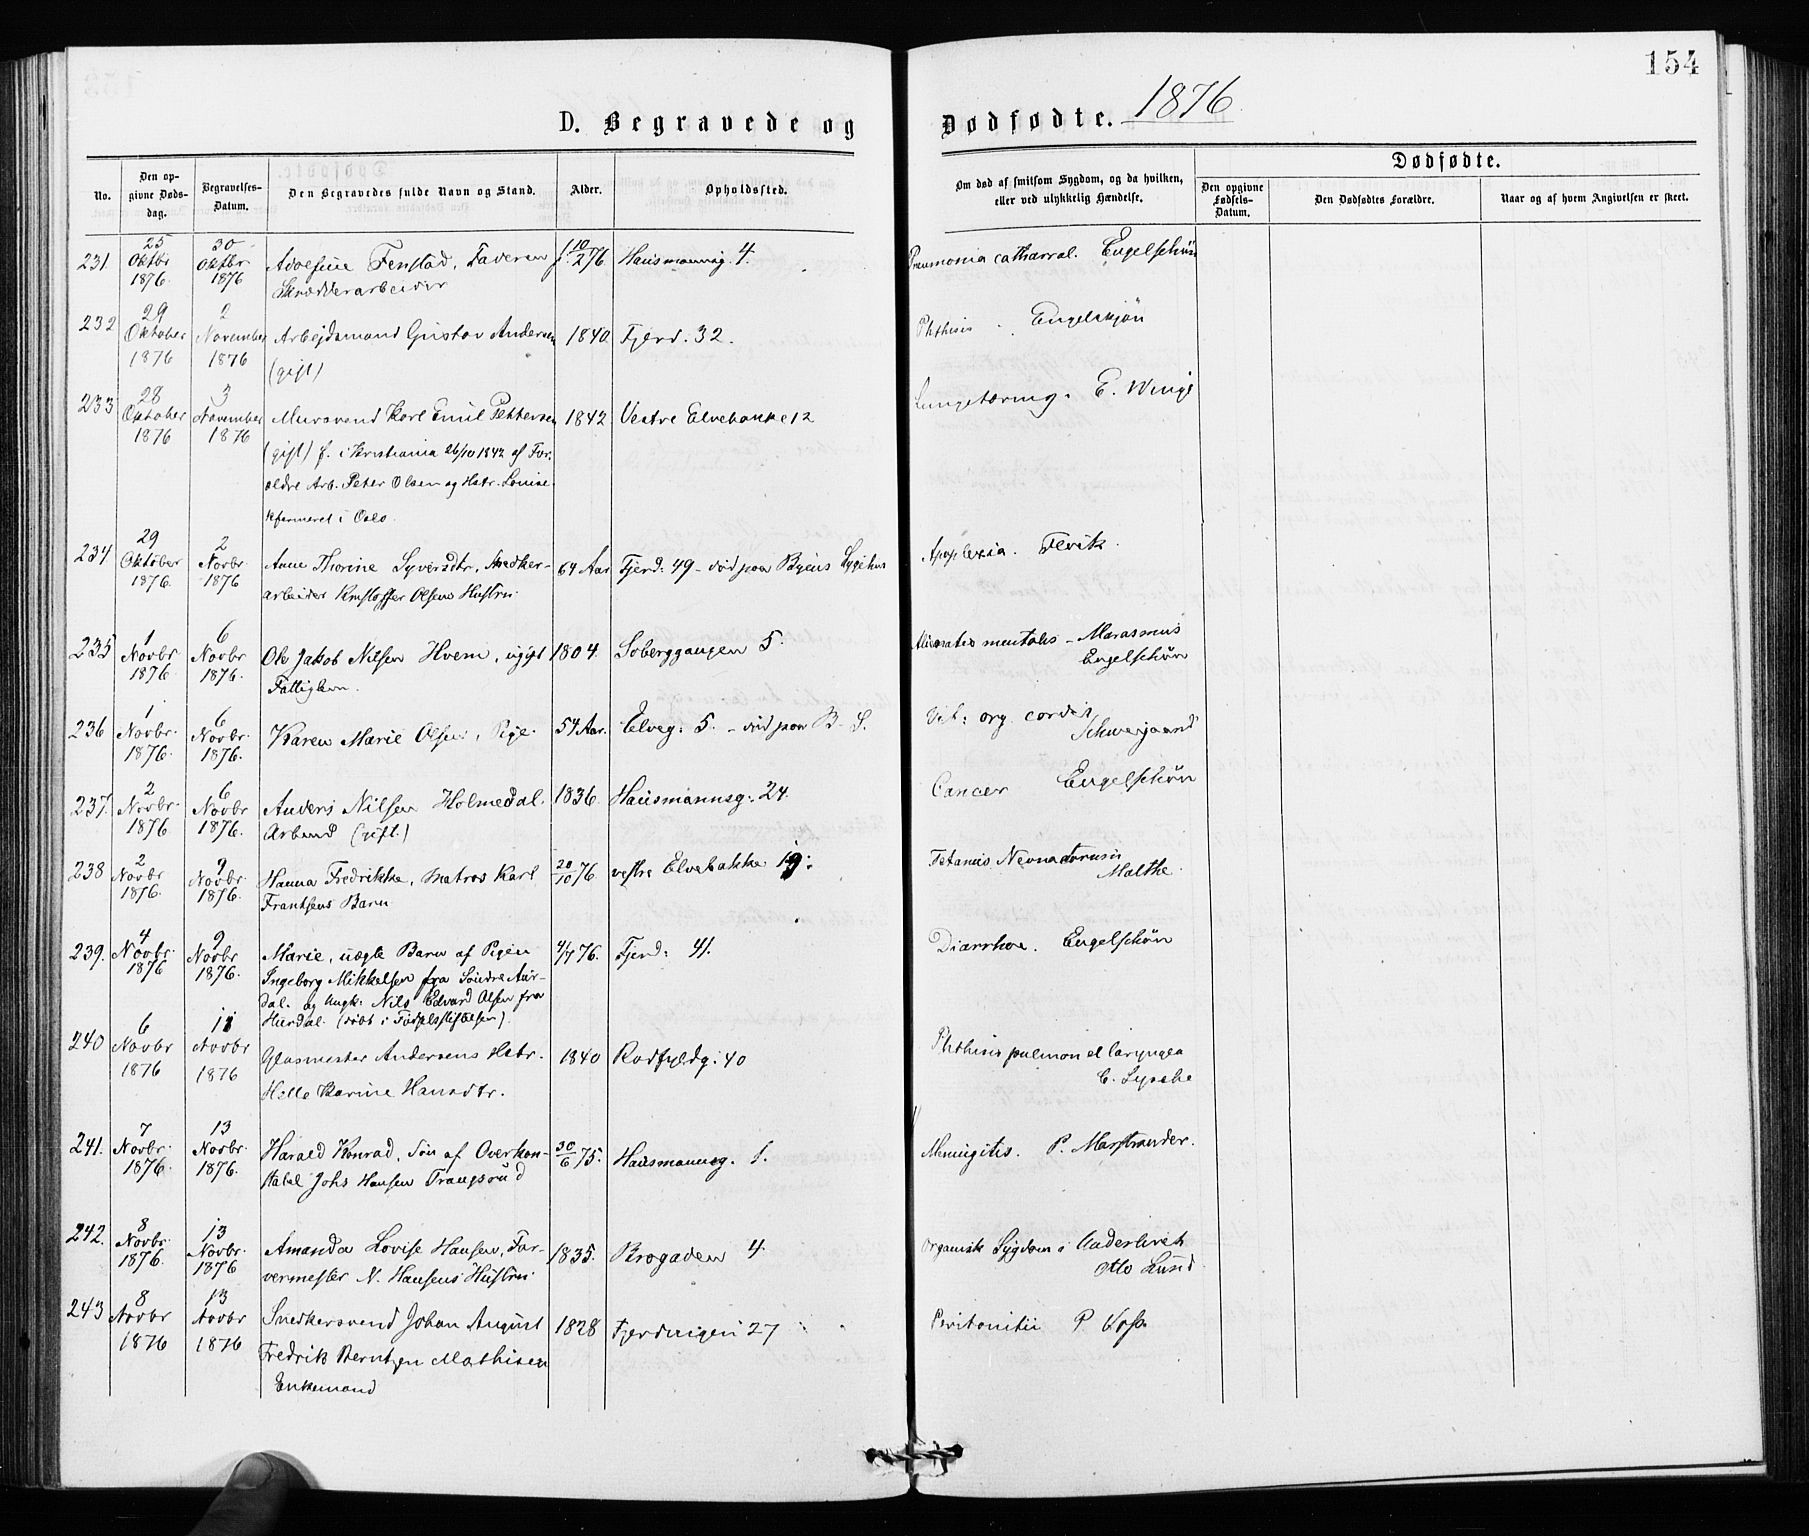 154
D. Begravede og Dødfødte. 1876
Dødfødte.
No.
Den op-
givne Døds-
dag.
Begravelses-
Datum.
Den Begravedes fulde Navn og Stand.
Alder.
Opholdssted.
Om død af smitsom Sygdom, og da hvilken,
eller ved ulykkelig Hændelse.
Den opgivne
Fødsels-
Datum.
Den Dødfødtes Forældre.
Naar og af hvem Angivelsen er skeet.
231. 25 Oktbr 1876. 30 Oktbr 1876
Adolfine Fenstad,
Skrædderarbeider
f. 10/2 76. Hausmannsg. 4. Pneumonia catharral. Engelschiøn
232 29 Oktober 1876 2 November 1876
Arbejdsmand Gustav Andersen
(gift)
1840. Fjerd. 32. Phthisis. Engelskjøn
233 28 Oktober 1876 3 November 1876
Mursvend Karl Emil Pettersen
(gift) f. i Kristiania 26/10 1842 af For-
ældre Arb. Peter Olsen og Hstr. Lovise
kfermeret i Oslo.
1842 Vestre Elvebakke 12 Lungetæring. E. Winge
234 29 Oktober 1876. 2 Novbr 1876
Anne Thorine Syversdtr, Snedker-
arbeider Kristoffer Olsens Hustru
64 Aar Fjerd: 49 – død paa Byens Sygehus Apoplexia.
235 1 Novbr 1876. 6 Novbr 1876.
Ole Jakob Nilsen Hvem, ugift
Fattiglem.
1804. Soberggangen 5. Alienatio mentalis – Marasmus
Engelschøn
236 1 Novbr. 1876. 6 Novbr. 1876.
Karen Marie Olsen, Pige.
54 Aar. Elveg: 5. – død paa B. S. Vit: org. cordis
237. 2 Novbr. 1876. 6 Novbr. 1876.
Anders Nilsen Holmedal.
Arbmd (gift.)
1836. Hausmannsg: 24. Cancer Engelschøn
238 2 Novbr 1876. 9 Novbr. 1876.
Hanna Fredrikke, Matros Karl
Frantsens Barn
20/10 76 vestre Elvebakke 19. Tetanus Neonatorum
Malthe.
239. 4 Novbr. 1876 9 Novbr. 1876.
Marie, uægte Barn af Pigen
Ingeborg Mikkelsen fra Søndre Aur-
dal. og Ungk: Nils Edvard Olsen fra
Hurdal. (døbt i Fødselsstiftelsen).
4/7 76. Fjerd: 41. Diarrhoe. Engelschøn
240 6 Novbr 1876 11 Novbr 1876
Glasmester Andersens Hstr.
Helle Karine Hansdtr.
1840 Rødfyldg: 40 Phthisis pulmon et laryngea
241. 7 Novbr. 1876. 13 Novbr. 1876.
Harald Konrad, Søn af Overkon-
stabel Johs Hansen Trangsrud
30/6 75. Hausmannsg. 1. Meningitis. P. Marstrander.
242. 8 Novbr. 1876. 13 Novbr. 1876
Amanda Lovise Hansen, Far-
vermester N. Hansens Hustru
1835. Brogaden 4. Organisk Sygdom i Underlivet
Otto Lund.
243 8 Novbr 1876 13 Novbr 1876
Snedkersvend Johan August
Fredrik Berntzen Mathisen
Enkemand
1828 Fjerdingen 27 Peritonitis P